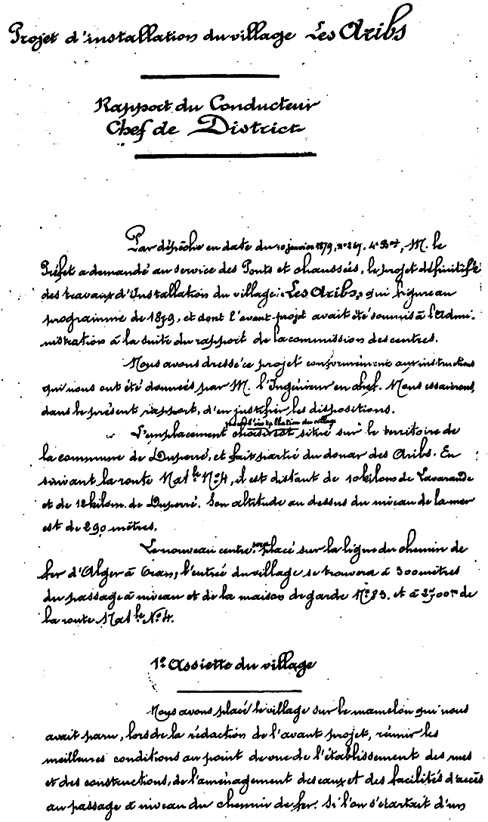 Projet d'installation du village Les Aribs
Rapport du Conducteur
Chef de District
Par dépêche en date du 10 janvier 1879, n° 367. 4e Bau, M. le
Préfet a demandé au service des Ponts et chaussées, le projet définitif
des travaux d'Installation du village "Les Aribs, qui figure au
programme de 1879, et dont l'avant-projet avait été soumis à l'Admi-
nistration à la suite du rapport de la commission des centres.
Nous avons dressé ce projet conformément aux instructions
qui nous ont été données par M. l'Ingénieur en chef. Nous essaierons,
dans le présent rapport, d'en justifier les dispositions.
L'emplacement choisi pour l'installation du village est situé sur le territoire de
la commune de Duperré, et fait partie du douar des Aribs. En
suivant la route Natle N°4, il est distant de 10 kilom de Lavarande
et de 12 kilom. de Duperré. Son altitude au dessus du niveau de la mer
est de 290 mètres.
Le nouveau centre sera placé sur la ligne du chemin de
fer d'Alger à Oran, l'entrée du village se trouvera à 300 mètres
du passage à niveau et de la maison de garde N° 83. et à 2700m de
la route Natle N° 4.
1° Assiette du village
Nous avons placé le village sur le mamelon qui nous
avait paru, lors de la rédaction de l'avant projet, réunir les
meilleures conditions au point de vue de l'établissement des rues
et des constructions, de l'aménagement des eaux et des facilités d'accès
au passage à niveau du chemin de fer. Si l'on s'écartait d'un